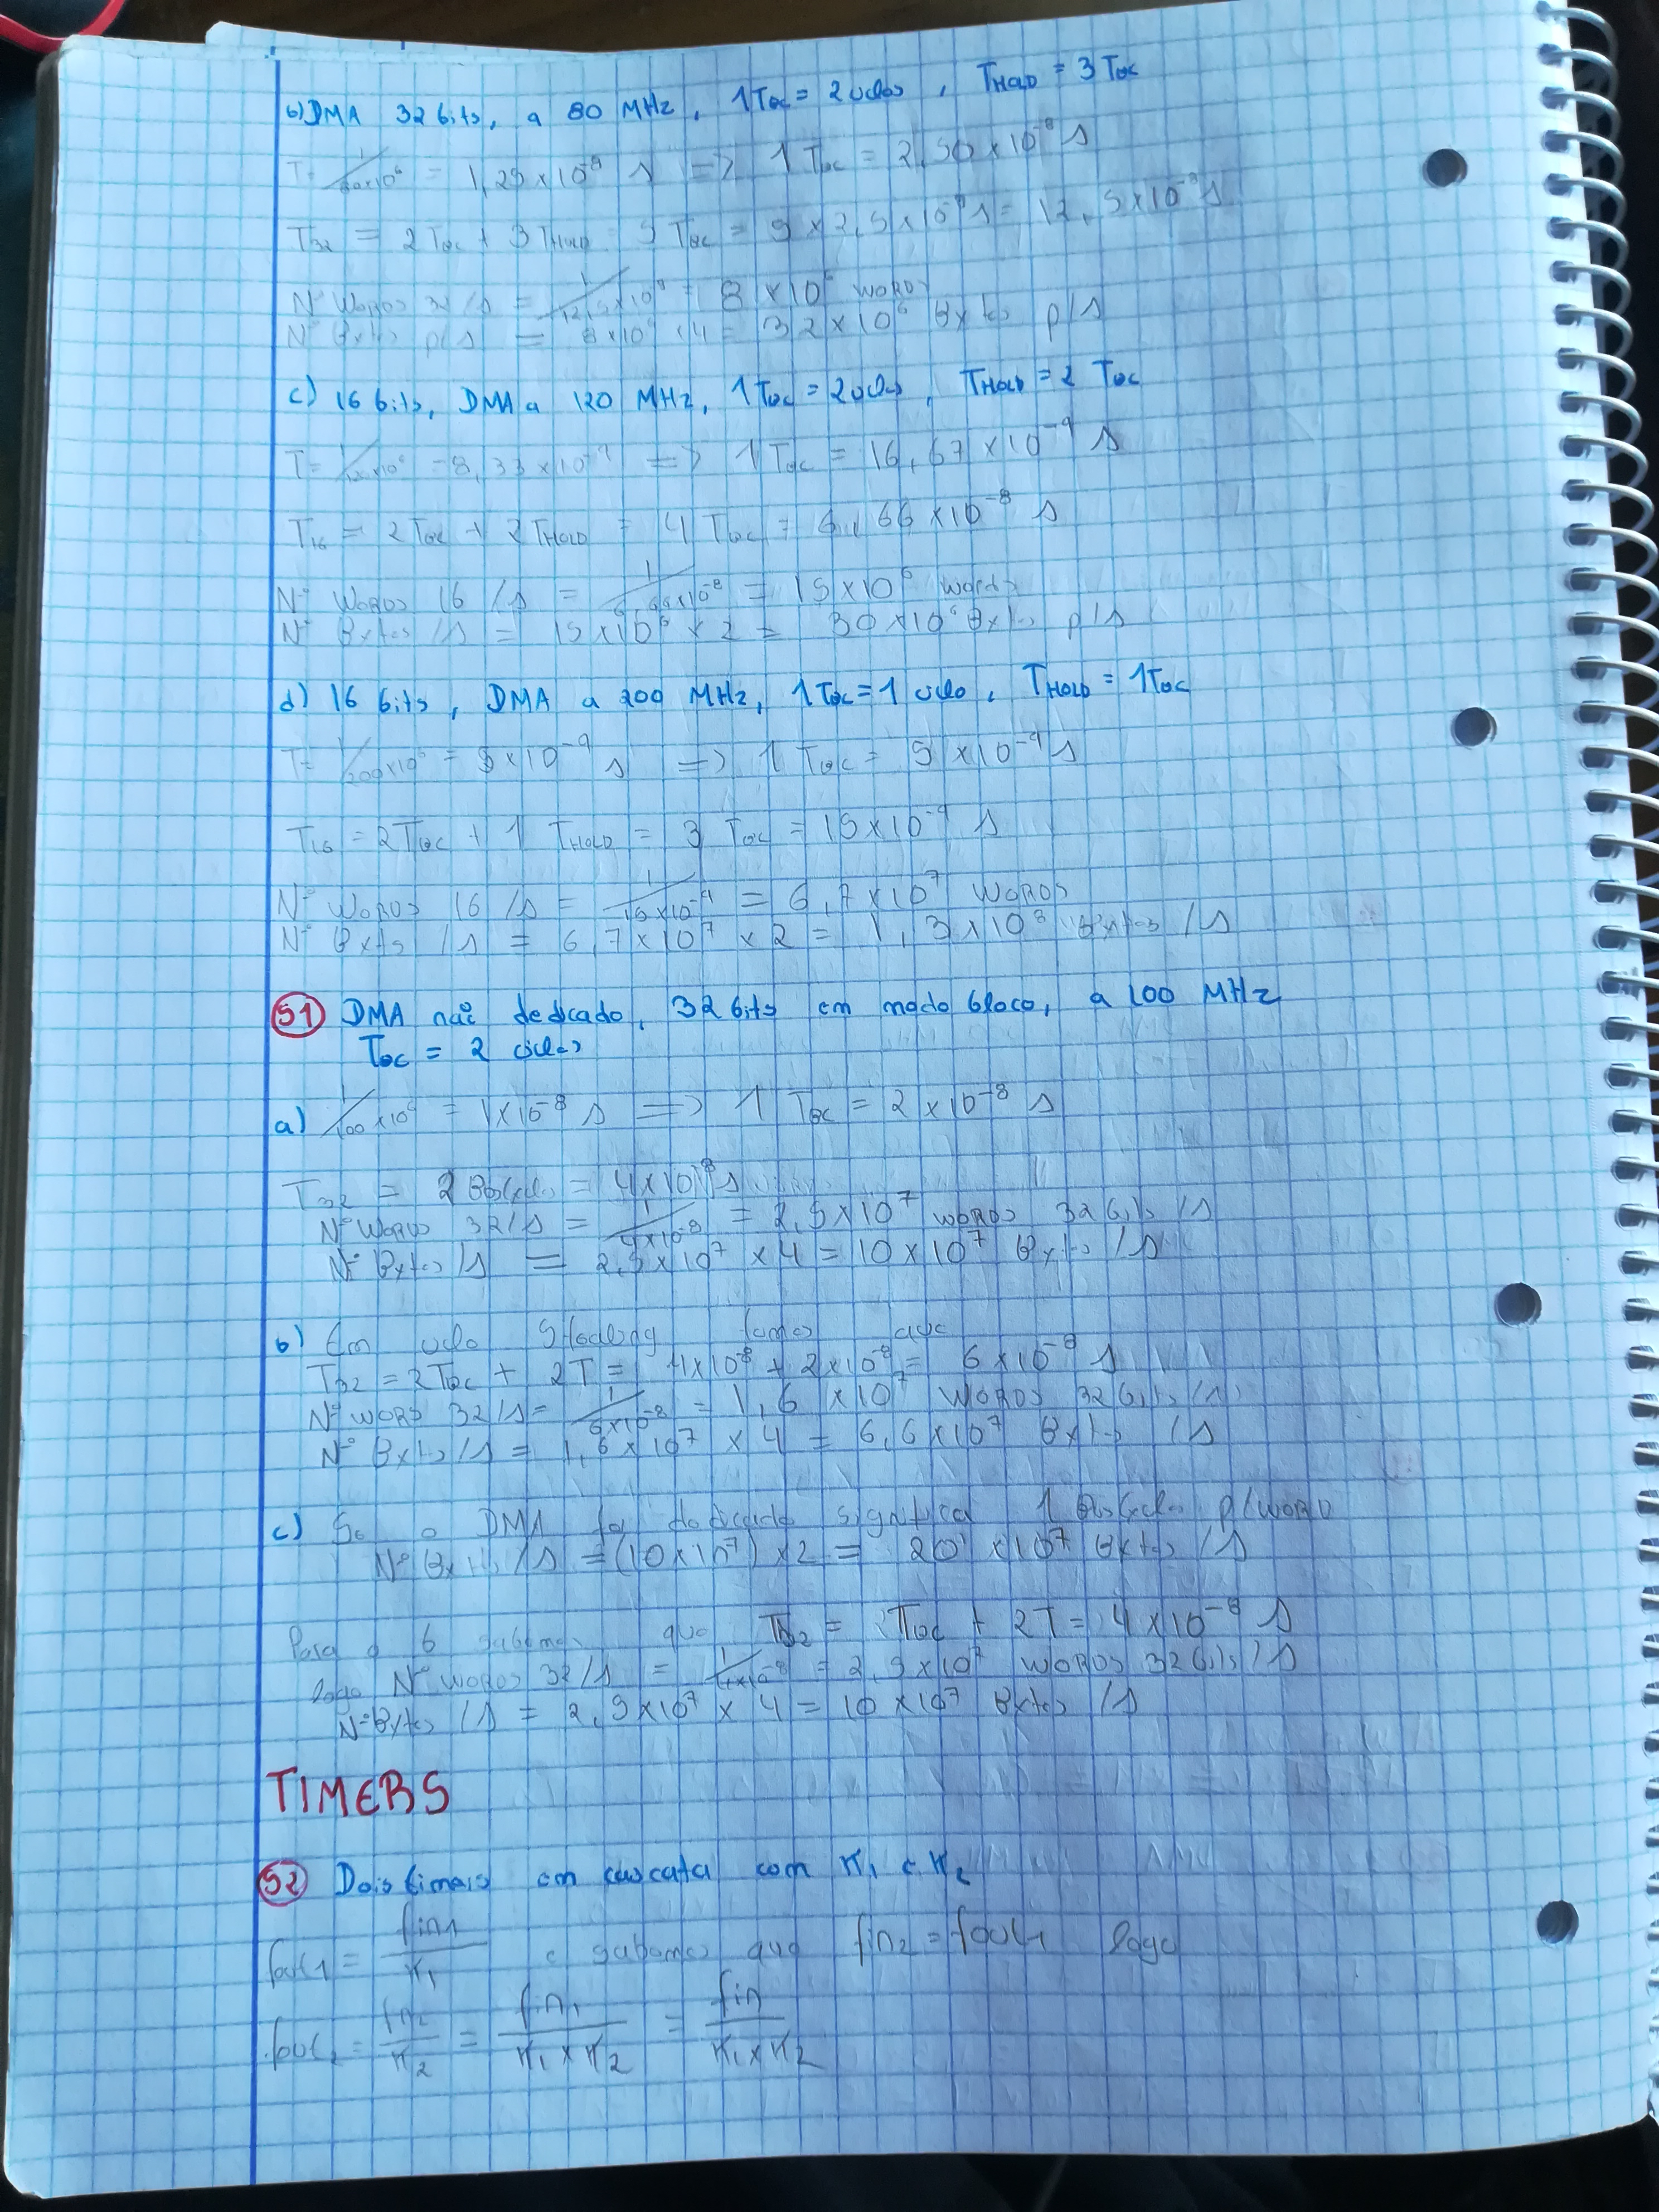 b) DMA 32 bits, a 80 MHz, 1 TBC = 2 ciclos, THOLD = 3 TBC
T = 1/80×10⁶ = 1,25×10⁻⁸ s => 1 TBC = 2,50×10⁻⁸ s
T32 = 2 TBC + 3 THOLD = 5 TBC = 5 × 2,5×10⁻⁸ s = 12,5×10⁻⁸ s
Nº Words 32 /s = 1/12,5×10⁻⁸ = 8×10⁶ words
Nº Bytes p/s = 8×10⁶ × 4 = 32×10⁶ Bytes p/s
c) 16 bits, DMA a 120 MHz, 1 TBC = 2 ciclos, THOLD = 2 TBC
T = 1/120×10⁶ = 8,33×10⁻⁹ => 1 TBC = 16,67×10⁻⁹ s
T16 = 2 TBC + 2 THOLD = 4 TBC = 6,66×10⁻⁸ s
Nº Words 16 /s = 1/6,66×10⁻⁸ = 15×10⁶ words
Nº Bytes /s = 15×10⁶ × 2 = 30×10⁶ Bytes p/s
d) 16 bits, DMA a 200 MHz, 1 TBC = 1 ciclo, THOLD = 1 TBC
T = 1/200×10⁶ = 5×10⁻⁹ s => 1 TBC = 5×10⁻⁹ s
T16 = 2 TBC + 1 THOLD = 3 TBC = 15×10⁻⁹ s
Nº Words 16 /s = 1/15×10⁻⁹ = 6,7×10⁷ words
Nº Bytes /s = 6,7×10⁷ × 2 = 1,3×10⁸ Bytes /s
51 DMA não dedicado, 32 bits em modo bloco, a 100 MHz
TBC = 2 ciclos
a) 1/100×10⁶ = 1×10⁻⁸ s => 1 TBC = 2×10⁻⁸ s
T32 = 2 Bus Cycles = 4×10⁻⁸ s
Nº Words 32 /s = 1/4×10⁻⁸ = 2,5×10⁷ words 32 bits /s
Nº Bytes /s = 2,5×10⁷ × 4 = 10×10⁷ Bytes /s
b) Em ciclo Stealing temos que
T32 = 2 TBC + 2T = 4×10⁻⁸ + 2×10⁻⁸ = 6×10⁻⁸ s
Nº word 32 /s = 1/6×10⁻⁸ = 1,6×10⁷ words 32 bits /s
Nº Bytes /s = 1,6×10⁷ × 4 = 6,6×10⁷ Bytes /s
c) Se o DMA for dedicado significa 1 Bus Cycle p/ word
Nº Bytes /s = (10×10⁷) × 2 = 20×10⁷ Bytes /s
Para o b sabemos que T32 = TBC + 2T = 4×10⁻⁸ s
logo Nº words 32 /s = 1/4×10⁻⁸ = 2,5×10⁷ words 32 bits /s
Nº Bytes /s = 2,5×10⁷ × 4 = 10×10⁷ Bytes /s
TIMERS
52 Dois timers em cascata com K1 e K2
fout1 = fin1/K1 e sabemos que fin2 = fout1 logo
fout2 = fin2/K2 = fin1/K1×K2 = fin/K1×K2